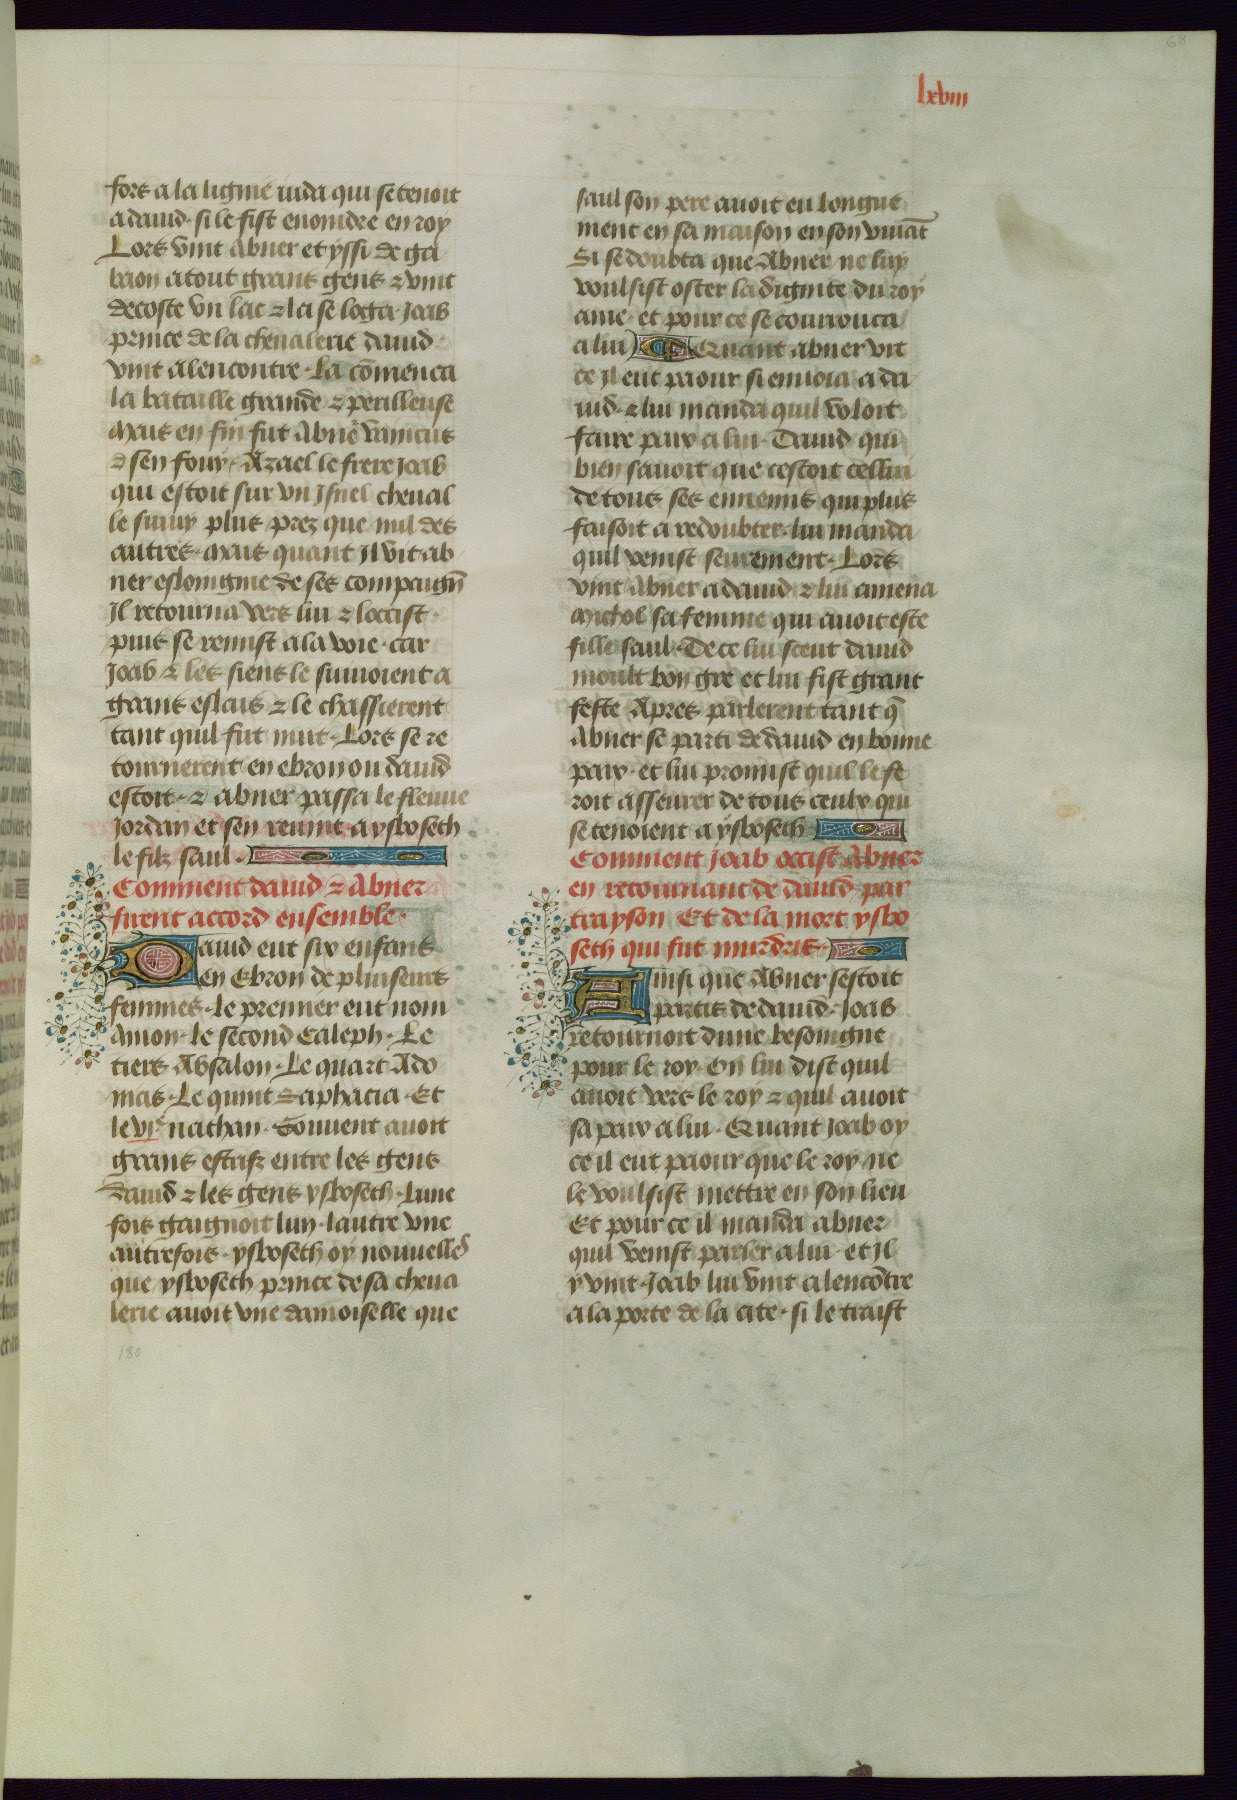 68
lxviii
fors a la lignie iuda qui se tenoit
a dauid · si le fist enoindre en roy
Lors vint Abner et yssi de ga
baon a tout grans gens ⁊ vint
decoste vn lac ⁊ la se loga · Joab
prince de la cheualerie dauid
vint alencontre · La cōmenca
la bataille grande ⁊ perilleuse
Mais en fin fut Abnē vaincus
⁊ sen fouy · Azael le frere Joab
qui estoit sur vn Isnel cheual
le suiuy plus prez que nul des
autres · Mais quant Jl vit ab
ner eslongnie de ses compaigñ
Jl retourna vers lui ⁊ loccist ·
puis se remist a la voie · car
Joab ⁊ les siens le suiuoient a
grans eslais ⁊ le chassierent
tant quil fut nuit · Lors se re
tournerent en ebron ou dauid
estoit · ⁊ abner passa le fleuue
Jordan et sen reuint a ysboseth
le filz saul ·
Comment dauid ⁊ Abner
firent accord ensemble ·
Dauid eut six enfans
en Ebron de pluiseurs
femmes · le premier eut nom
Amon · le second Caleph · Le
tiers Absalon · Le quart Ado
nias · Le quint Saphacia · Et
le vj.e nathan · Souuent auoit
grans estrifz entre les gens
dauid ⁊ les gens ysboseth · Lune
fois gaignoit lun · lautre vne
autrefois · ysboseth oy nouuelles
que ysboseth prince de sa cheua
lerie auoit vne damoiselle que
180
saul son pere auoit eu longue
ment en sa maison en son viuāt
Si se doubta que Abner ne luy
voulsist oster la dignite du roy
ame · et pour ce se courrouca
a lui) Quant abner vit
ce Jl eut paour si enuoia a da
uid · ⁊ lui manda quil voloit
faire paix a lui · Dauid qui
bien sauoit que cestoit cellui
de tous ses ennemis qui plus
faisoit a redoubter · lui manda
quil venist seurement · Lors
vint Abner a dauid ⁊ lui amena
Michol sa femme qui auoit este
fille saul · De ce lui sceut dauid
moult bon gre et lui fist grant
feste Apres parlerent tant q̄
Abner se parti de dauid en bonne
paix · et lui promist quil le fe
roit asseurer de tous ceulx qui
se tenoient a ysboseth
Comment Joab occist Abner
en retournant de dauid par
trayson Et de la mort ysbo
seth qui fut murdris ·
Ainsi que Abner sestoit
partis de dauid · Joab
retournoit dune besoingne
pour le roy · On lui dist quil
auoit vers le roy ⁊ quil auoit
sa paix a lui · Quant Joab oy
ce il eut paour que le roy ne
le voulsist mettre en son lieu
Et pour ce il manda abner
quil venist parler a lui · et Jl
y vint · Joab lui vint alencōtre
a la porte de la cite · si le traist